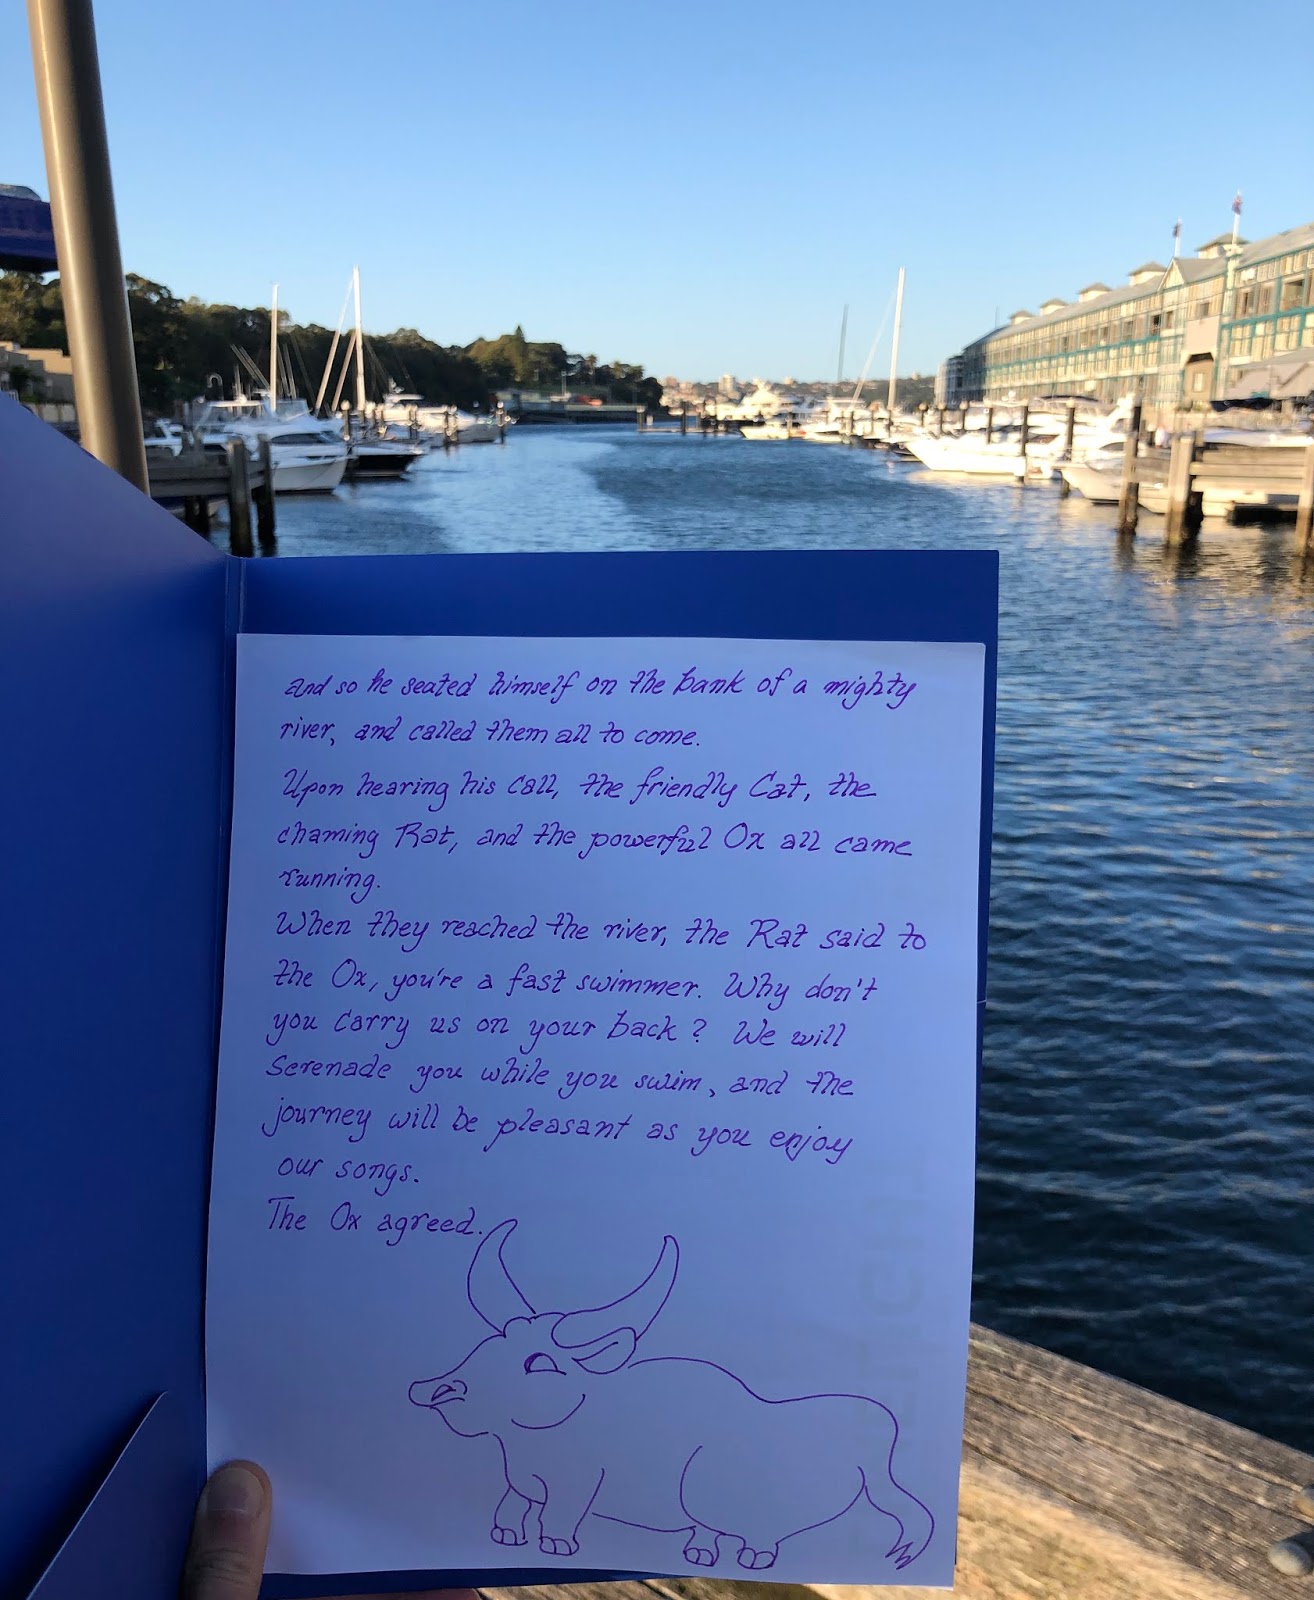 and so he seated himself on the bank of a mighty
river, and called them all to come.
Upon hearing his call, the friendly Cat, the
chaming Rat, and the powerful Ox all came
running.
When they reached the river, the Rat said to
the Ox, you're a fast swimmer. Why don't
you carry us on your back? We will
serenade you while you swim, and the
journey will be pleasant as you enjoy
our songs.
The Ox agreed.